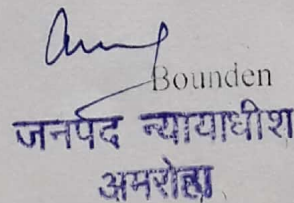 Bounden
जनपद न्यायाधीश
अमरोहा